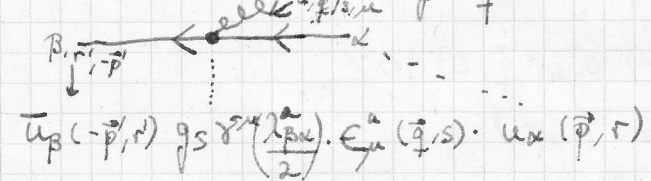 β, r', -p⃗' α
ū_β(-p⃗', r') g_S γ^μ (λ^a_βα / 2) · ε^a_μ (q⃗, s) · u_α (p⃗, r)